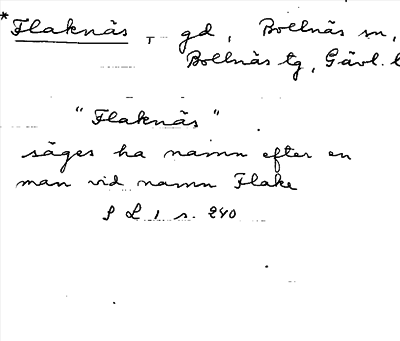 *Flaknäs, gd, Bollnäs sn,
Bollnäs tg, Gävl. l
"Flaknäs"
säges ha namn efter en
man vid namn Flake
P L 1 s. 240